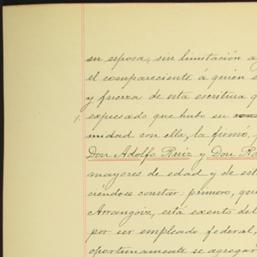 su esposa, sin limitación a
el compareciente á quien
y fuerza de esta escritura q
expresado que hubo su
midad con ella, la firmó,
Don Adolfo Ruiz y Don R
mayores de edad y de est
ciendose constar primero, que
Arrangoiz, está exento del
por ser empleado federal,
oportunamente se agregar